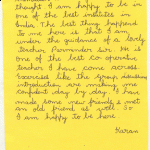 thought I am happy to be in
one of the best institutes in
India. The best thing happened
to me here is that I am
under the guidance of a lovely
teacher Parminder Sir. He is
one of the best co operative
teacher I have come across
Excercises like the group
introduction are making me
confident day by day. I have
made some new friends & met
an old friend as well. So
I am happy to be here
Karan